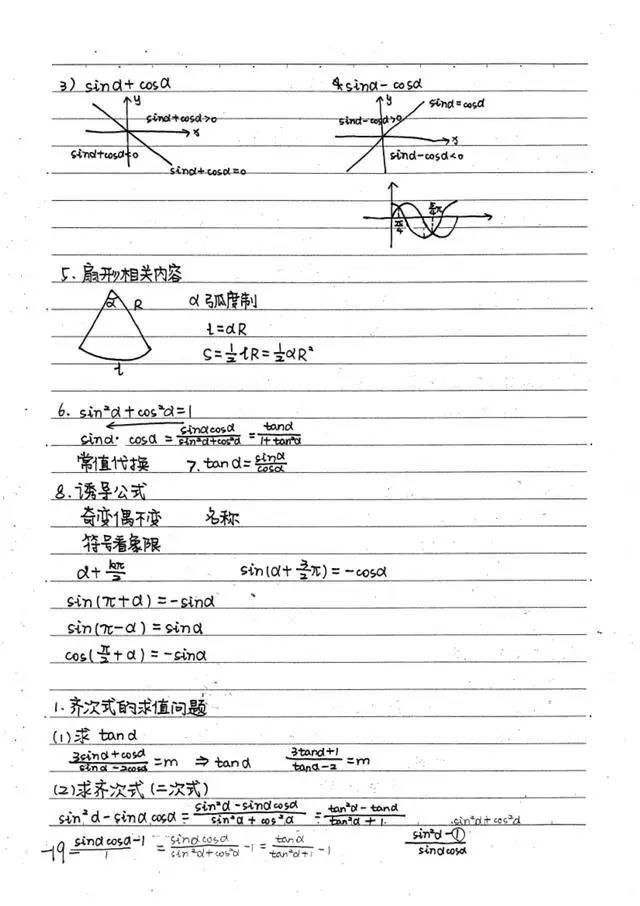 3) sinα+cosα
4 sinα-cosα
y
sinα+cosα>0
x
sinα+cosα<0
sinα+cosα=0
y
sinα=cosα
sinα-cosα>0
x
sinα-cosα<0
π/4
5/4π
5. 扇形相关内容
α R
l
α 弧度制
l=αR
S=1/2lR=1/2αR²
6. sin²α+cos²α=1
sinα·cosα=sinαcosα/(sin²α+cos²α)=tanα/(1+tan²α)
常值代换 7. tanα=sinα/cosα
8. 诱导公式
奇变偶不变 名称
符号看象限
α+kπ/2 sin(α+3/2π)=-cosα
sin(π+α)=-sinα
sin(π-α)=sinα
cos(π/2+α)=-sinα
1. 齐次式的求值问题
(1)求 tanα
(3sinα+cosα)/(sinα-2cosα)=m ⇒tanα (3tanα+1)/(tanα-2)=m
(2)求齐次式(二次式)
sin²α-sinαcosα=(sin²α-sinαcosα)/(sin²α+cos²α)=(tan²α-tanα)/(tan²α+1) sin²α+cos²α
(sinαcosα-1)/1=sinαcosα/(sin²α+cos²α)-1=tanα/(tan²α+1)-1 (sin²α-①)/(sinαcosα)